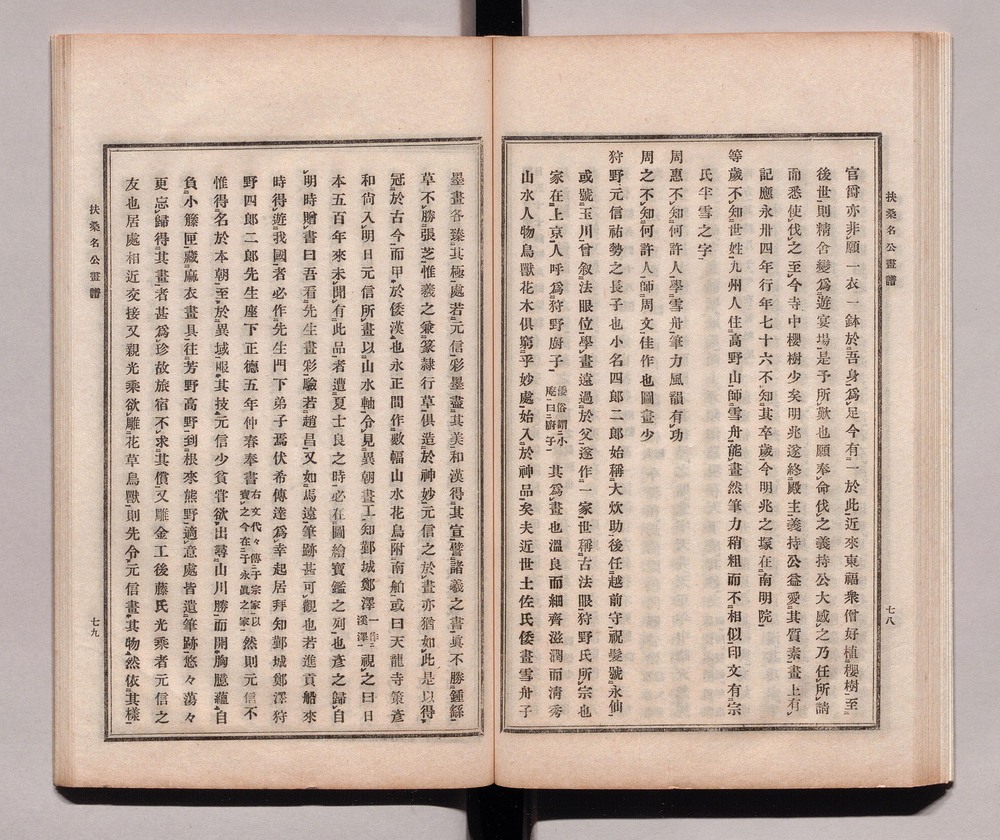 扶桑名公畫譜
七八
官爵亦非願一衣一鉢於吾身爲足今有一於此近來東福衆僧好植櫻樹至
後世則精舍變爲遊宴場是予所歎也願奉命伐之義持公大感之乃任所請
而悉使伐之至今寺中櫻樹少矣明兆遂終殿主義持公益愛其質素畫上有
記應永卅四年行年七十六不知其卒歲今明兆之塚在南明院
等歲不知世姓九州人住高野山師雪舟能畫然筆力稍粗而不相似印文有宗
氏半雪之字
周惠不知何許人學雪舟筆力風韻有功
周之不知何許人師周文佳作也圖畫少
狩野元信祐勢之長子也小名四郎二郎始稱大炊助後任越前守祝髮號永仙
或號玉川曾叙法眼位學畫遠過於父遂作一家世稱古法眼狩野氏所宗也
家在上京人呼爲狩野廚子倭俗謂小庵曰廚子其爲畫也溫良而細齊滋潤而淸秀
山水人物鳥獸花木俱窮乎妙處始入於神品矣夫近世土佐氏倭畫雪舟子
墨畫各臻其極處若元信彩墨盡其美和漢得其宜譬諸羲之書眞不勝鍾繇
草不勝張芝惟羲之兼篆隸行草俱造於神妙元信之於畫亦猶如此是以得
冠於古今而甲於倭漢也永正間作數幅山水花鳥附南舶或曰天龍寺策彥
和尙入明日元信所畫以山水軸分見異朝畫工知鄞城鄭澤一作漢澤視之曰日
本五百年來未聞有此品者遭夏士良之時必在圖繪寶鑑之列也彥之歸自
明時贈書曰吾看先生畫彩驗若趙昌又如馬遠筆跡甚可觀也若進貢船來
時得遊我國者必作先生門下弟子焉伏希傳達爲幸起居拜知鄞城鄭澤狩
野四郎二郎先生座下正德五年仲春奉書右文代々傳于宗家以寶之今在于永眞之家然則元信不
惟得名於本朝至於異域服其技元信少貧嘗欲出尋山川勝而開胸臆蘊自
負小籐匣藏麻衣畫具往芳野高野到根來熊野適意處皆遺筆跡悠々蕩々
更忘歸得其畫者甚爲珍故旅宿不求其償又雕金工後藤氏光乘者元信之
友也居處相近交接又親光乘欲雕花草鳥獸則先分元信畫其物然依其樣
扶桑名公畫譜
七九